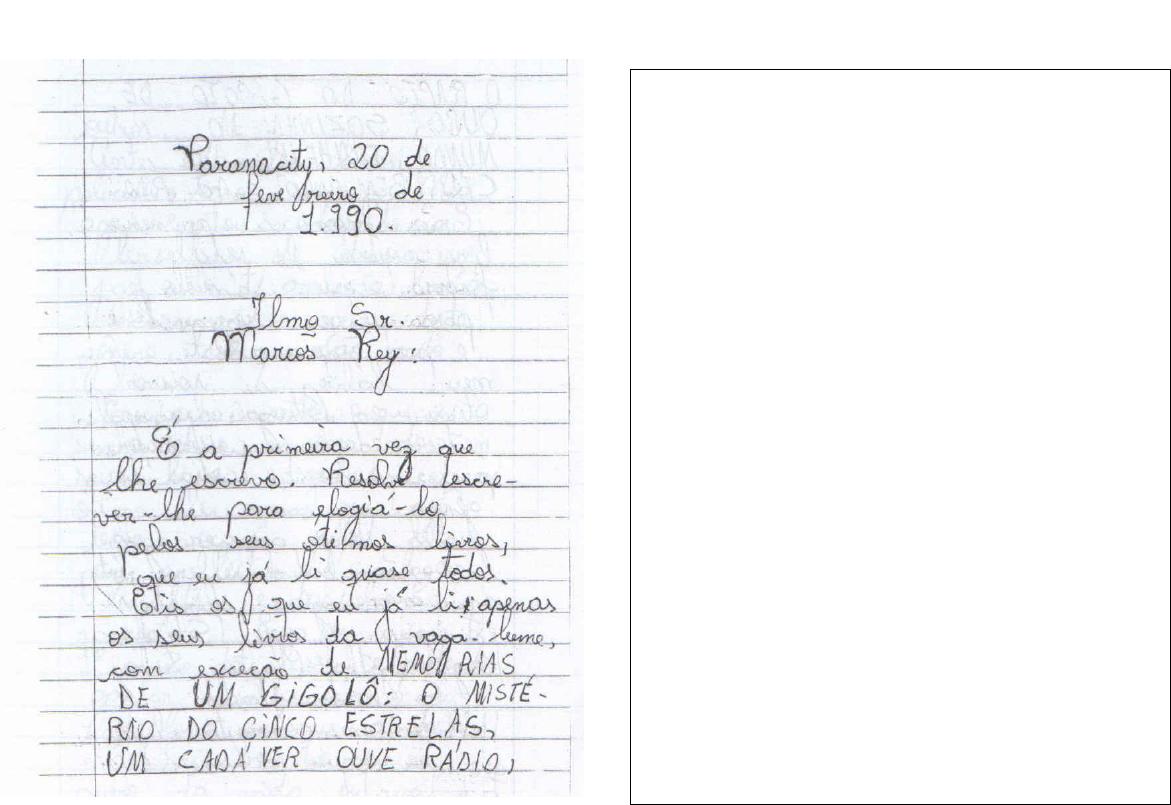 Paranacity, 20 de
fevereiro de
1.990.
Ilmo Sr.
Marcos Rey:
É a primeira vez que
lhe escrevo. Resolvi escre-
ver-lhe para elogiá-lo
pelos seus ótimos livros,
que eu já li quase todos.
Eis os que eu já li: apenas
os seus livros da vaga-lume,
com exceção de MEMÓRIAS
DE UM GIGOLÔ: O MISTÉ-
RIO DO CINCO ESTRELAS,
UM CADÁVER OUVE RÁDIO,